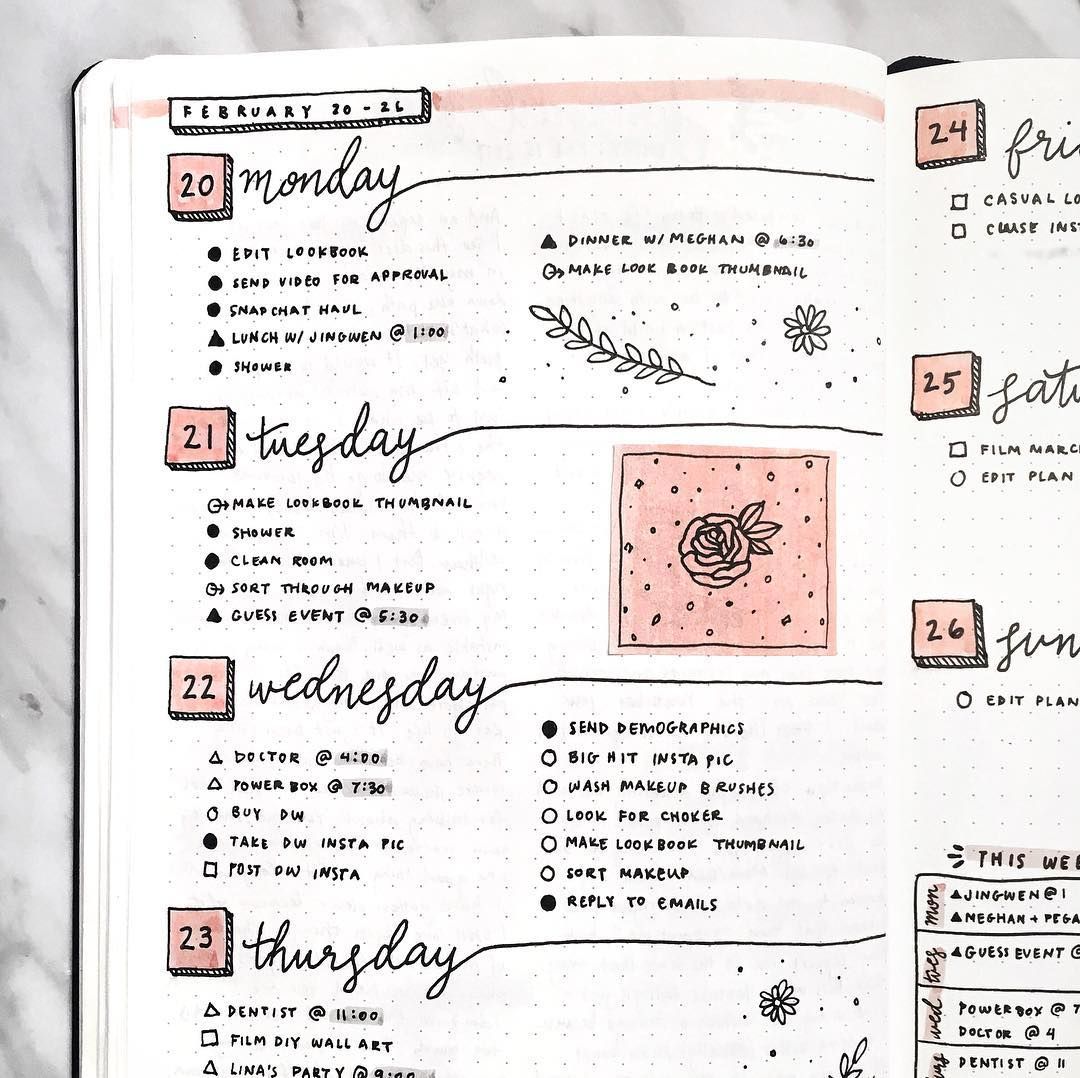 FEBRUARY 20 - 26
20 monday
EDIT LOOKBOOK
SEND VIDEO FOR APPROVAL
SNAPCHAT HAUL
LUNCH W/ JINGWEN @ 1:00
SHOWER
DINNER W/ MEGHAN @ 6:30
MAKE LOOK BOOK THUMBNAIL
21 tuesday
MAKE LOOKBOOK THUMBNAIL
SHOWER
CLEAN ROOM
SORT THROUGH MAKEUP
GUESS EVENT @ 5:30
22 wednesday
DOCTOR @ 4:00
POWER BOX @ 7:30
BUY DW
TAKE DW INSTA PIC
POST DW INSTA
SEND DEMOGRAPHICS
BIG HIT INSTA PIC
WASH MAKEUP BRUSHES
LOOK FOR CHOKER
MAKE LOOKBOOK THUMBNAIL
SORT MAKEUP
REPLY TO EMAILS
23 thursday
DENTIST @ 11:00
FILM DIY WALL ART
LINA'S PARTY @ 9:00
24 fri
CASUAL LO
CLUSE INST
25 satu
FILM MARC
EDIT PLAN
26 sun
EDIT PLAN
THIS WEE
mon
JINGWEN @ 1
MEGHAN + PEGA
tues
GUESS EVENT @
wed
POWERBOX @ 7
DOCTOR @ 4
DENTIST @ 11